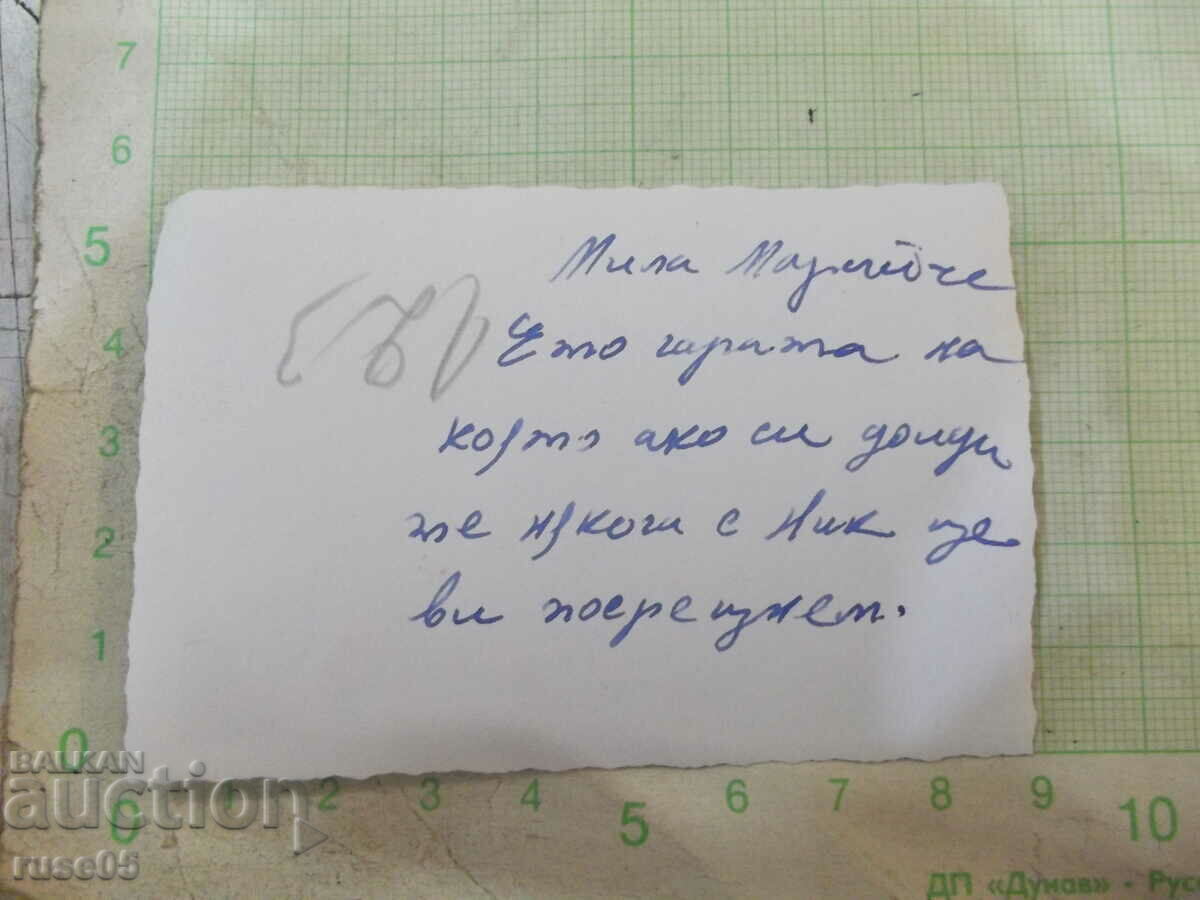 7
6
5
4
3
2
1
0
Мила
Ето гарата на
която ако си додиди
же някоги с Ник ще
ви посрещнем.
0 1 2 3 4 5 6 7 8 9 10
BALKAN
auction
ruse05
ДП «Дунав» - Русе